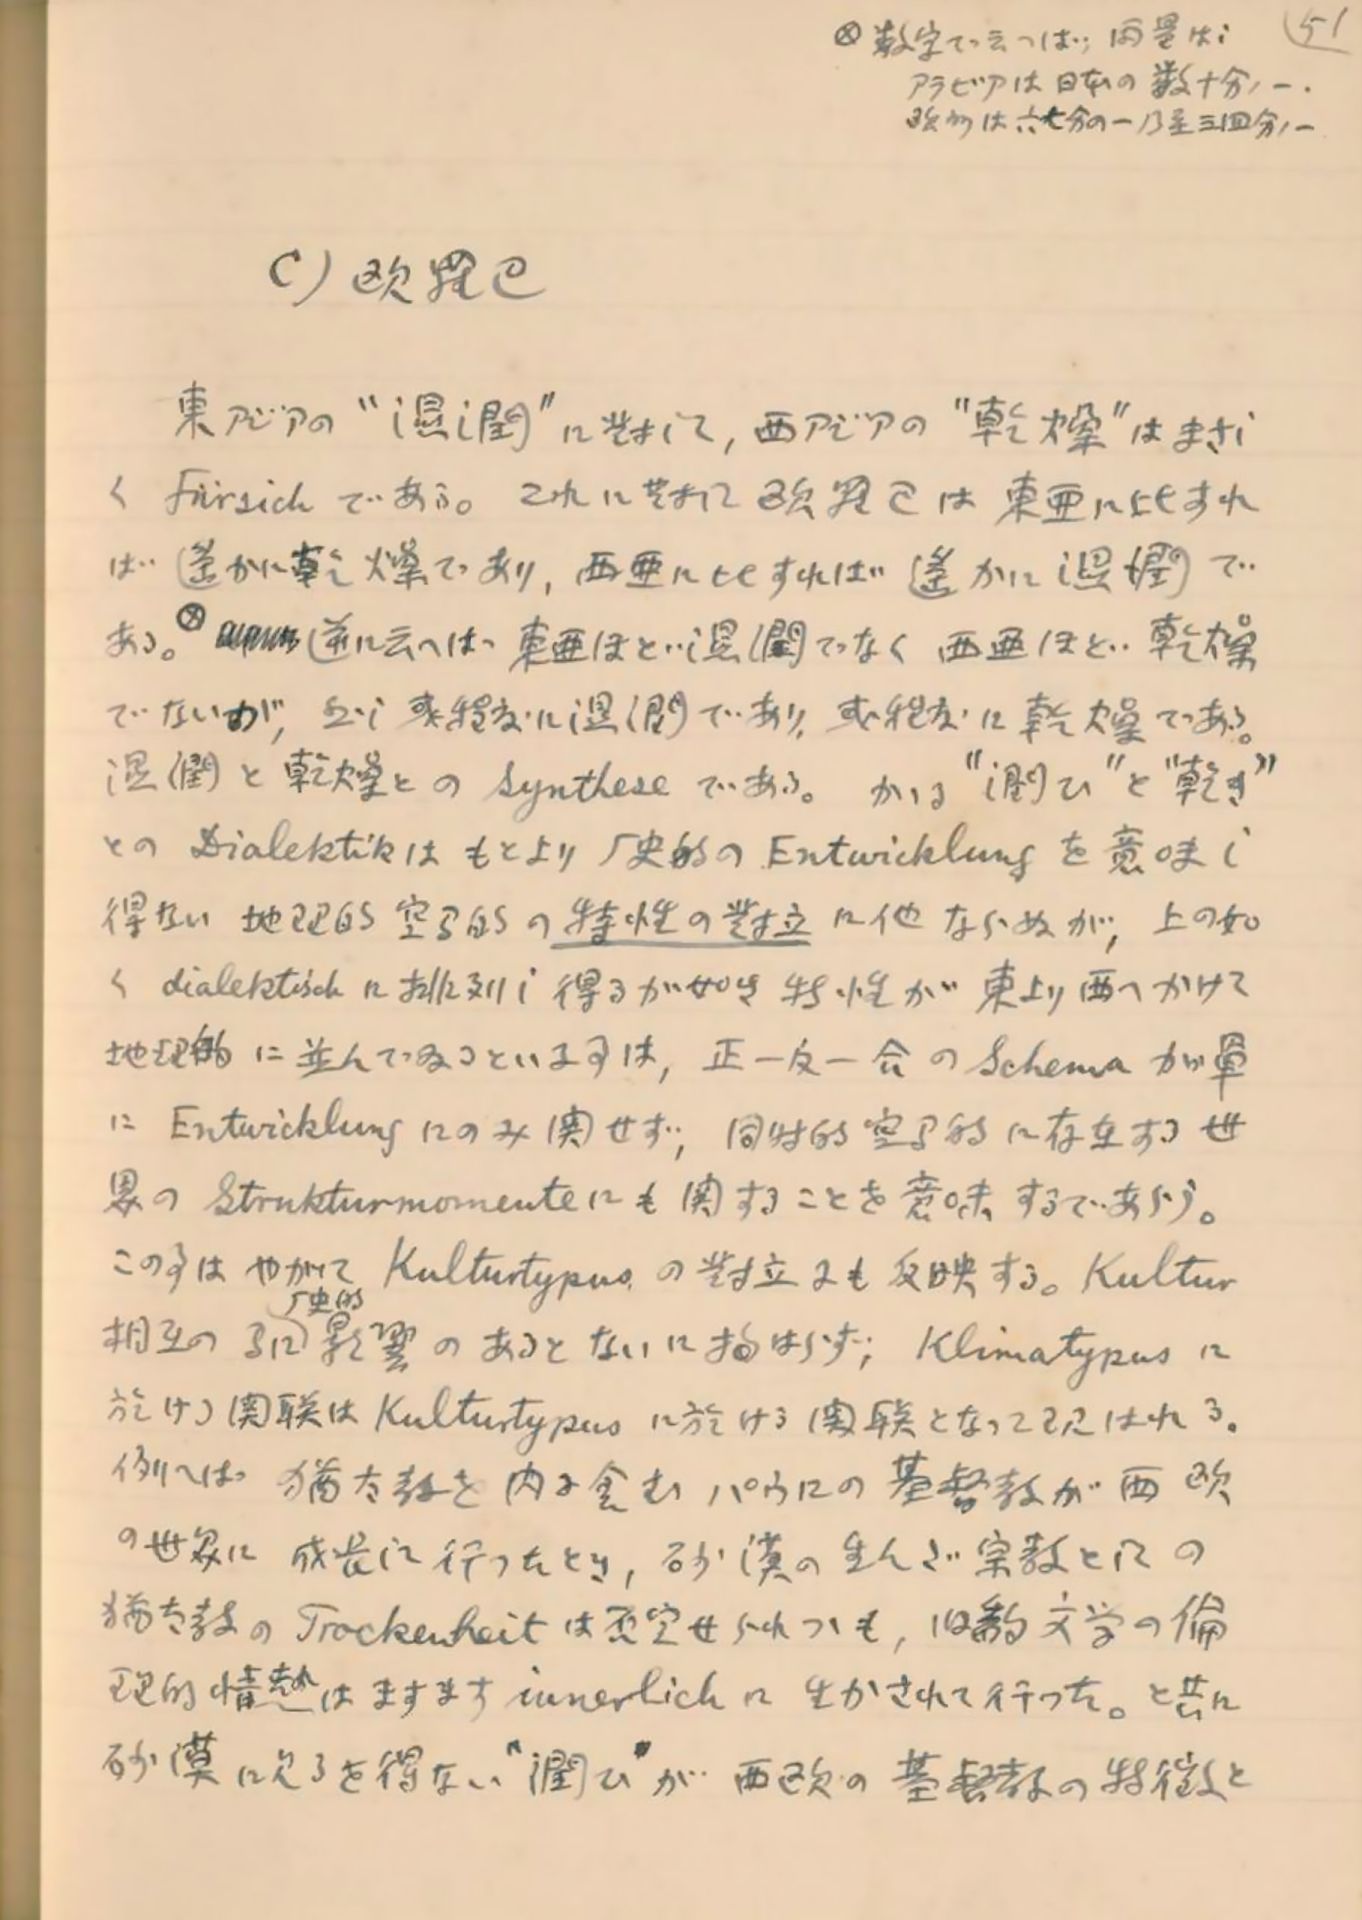 51
⊗ 数字で云つば、雨量は
アラビアは日本の数十分ノ一.
欧州は六七分の一乃至三四分ノ一
C) 欧羅巴
東アジアの“湿潤”に対して, 西アジアの“乾燥”はまさし
く Fürsich である。これに対して欧羅巴は東亜に比すれ
ば遙かに乾燥であり, 西亜に比すれば遙かに湿潤で
ある。⊗ 逆に云へば東亜ほど湿潤でなく西亜ほど乾燥
でないが, 而し或程度に湿潤であり, 或程度に乾燥である。
湿潤と乾燥との Synthese である。かゝる“潤ひ”と“乾き”
との Dialektik はもとより歴史的の Entwicklung を意味し
得ない地理的空間的の特性の対立に他ならぬが, 上の如
く dialektisch に排列し得るが如き特性が東より西へかけて
地理的に並んでゐるといふ事は, 正―反―合の Schema が単
に Entwicklung にのみ関せず, 同時的空間的に存在する世
界の Strukturmomente にも関することを意味するであらう。
この事はやがて Kulturtypus の対立にも反映する。Kultur
相互の間に歴史的影響のあるとないに拘はらず, Klimatypus に
於ける関联は Kulturtypus に於ける関联となって現はれる。
例へば猶太教を内に含むパウロの基督教が西欧
の世界に成長して行つたとき, 砂漠の生んだ宗教としての
猶太教の Trockenheit は否定せられつゝも, 旧約文学の倫
理的情熱はますます innerlich に生かされて行つた。と共に
砂漠に見るを得ない“潤ひ”が西欧の基督教の特徴と